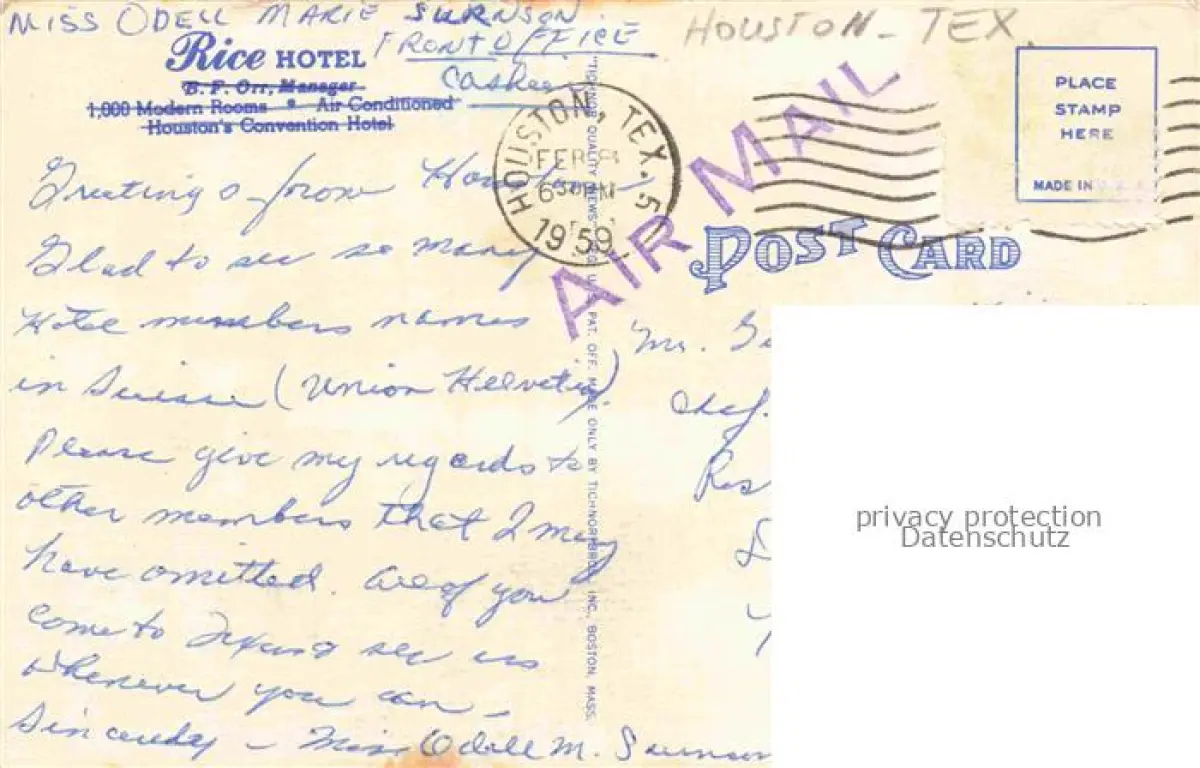 MISS ODELL MARIE SURNSON
FRONT OFFICE
Casher
HOUSTON - TEX.
Rice HOTEL
B. F. Orr, Manager
1,000 Modern Rooms • Air Conditioned
Houston's Convention Hotel
HOUSTON, TEX. 5
FEB
630 PM
1959
AIR MAIL
PLACE
STAMP
HERE
MADE IN U.S.A.
POST CARD
Greetings from Houston
Glad to see so many
Hotel members names
in Suisse (Union Helvetia).
Please give my regards to
other members that I may
have omitted. All of you
come to Texas & see us
whenever you can -
Sincerely - Miss Odell M.
Mr.
Chef.
Res
privacy protection
Datenschutz